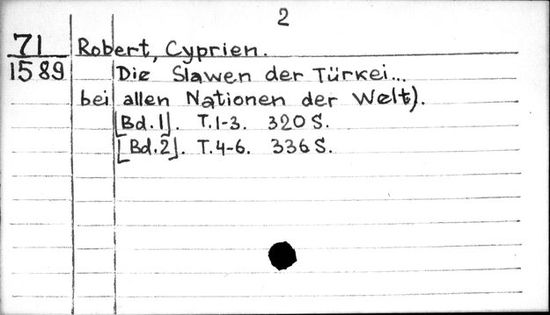 2
71 Robert, Cyprien.
1589 Die Slawen der Türkei...
bei allen Nationen der Welt).
[Bd.1]. T.1-3. 320 S.
[Bd.2]. T.4-6. 336 S.